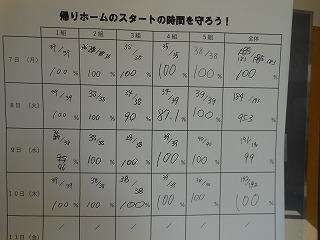 帰りホームのスタートの時間を守ろう！
1組 2組 3組 4組 5組 全体
7日（月） 39/39 35/35 35/35 38/38
100% 100% 100% 100% 100% 100%
8日（火） 39/39 38/38 34/38 34/39 39/39 184/193
100% 100% 90% 87.1% 100% 95.3%
9日（水） 38/38 38/38 39/39 40/40
% 100% 100% 100% 100% 99%
10日（木） 39/39 38/38 38/38 39/39 38/38 192/192
100% 100% 100% 100% 100% 100%
11日（金） / / / / / /